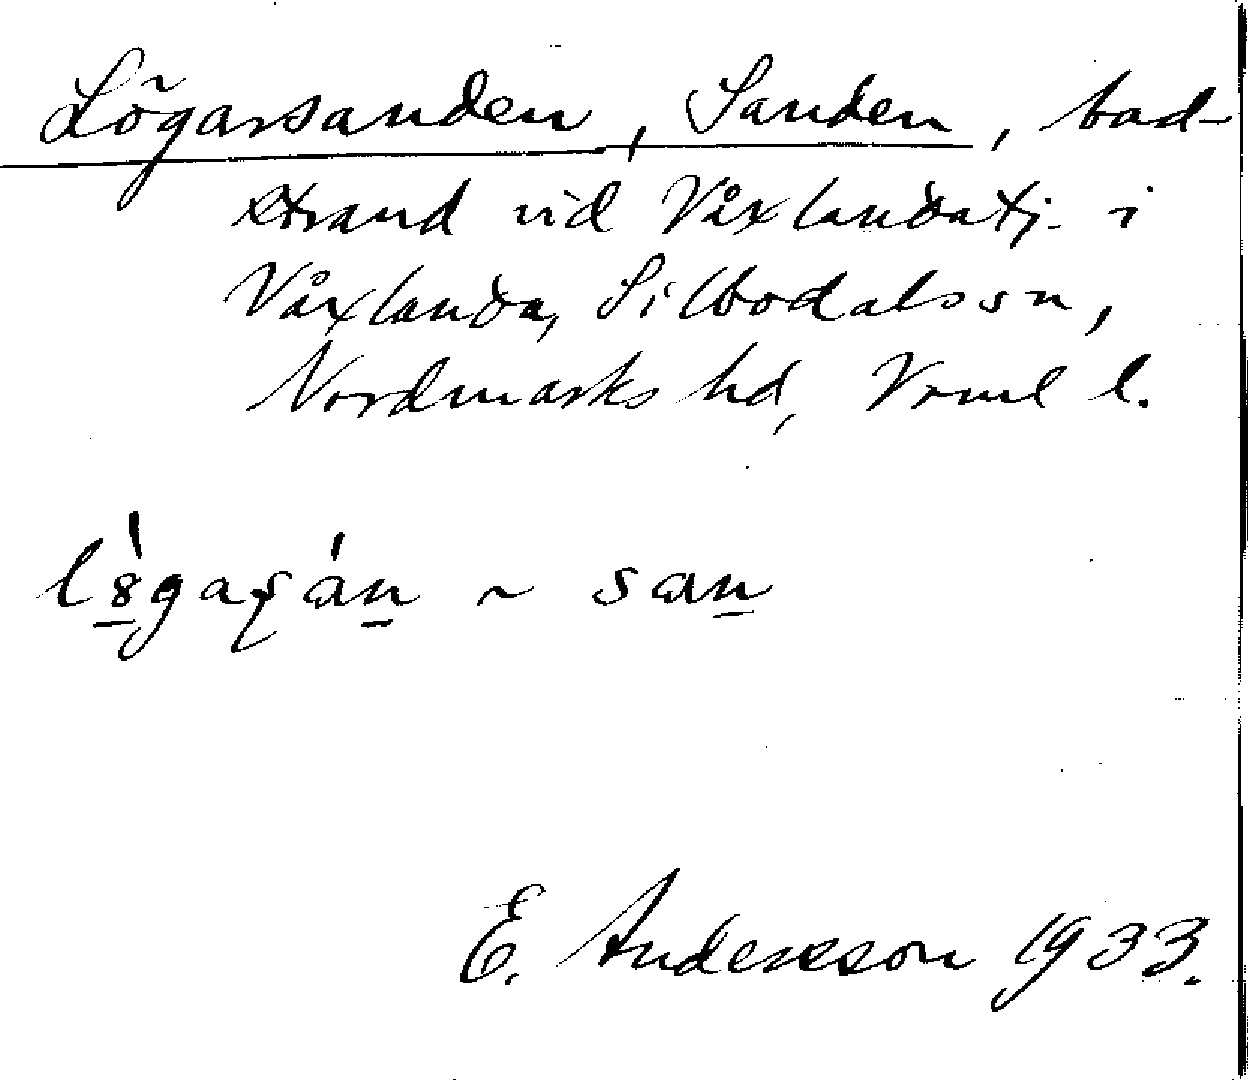 Lögarsanden, Sanden, bad-
strand vid Våxlandatj. i
Våxlanda, Silbodals sn,
Nordmarks hd, Vrml l.
san
E. Andersson 1933.